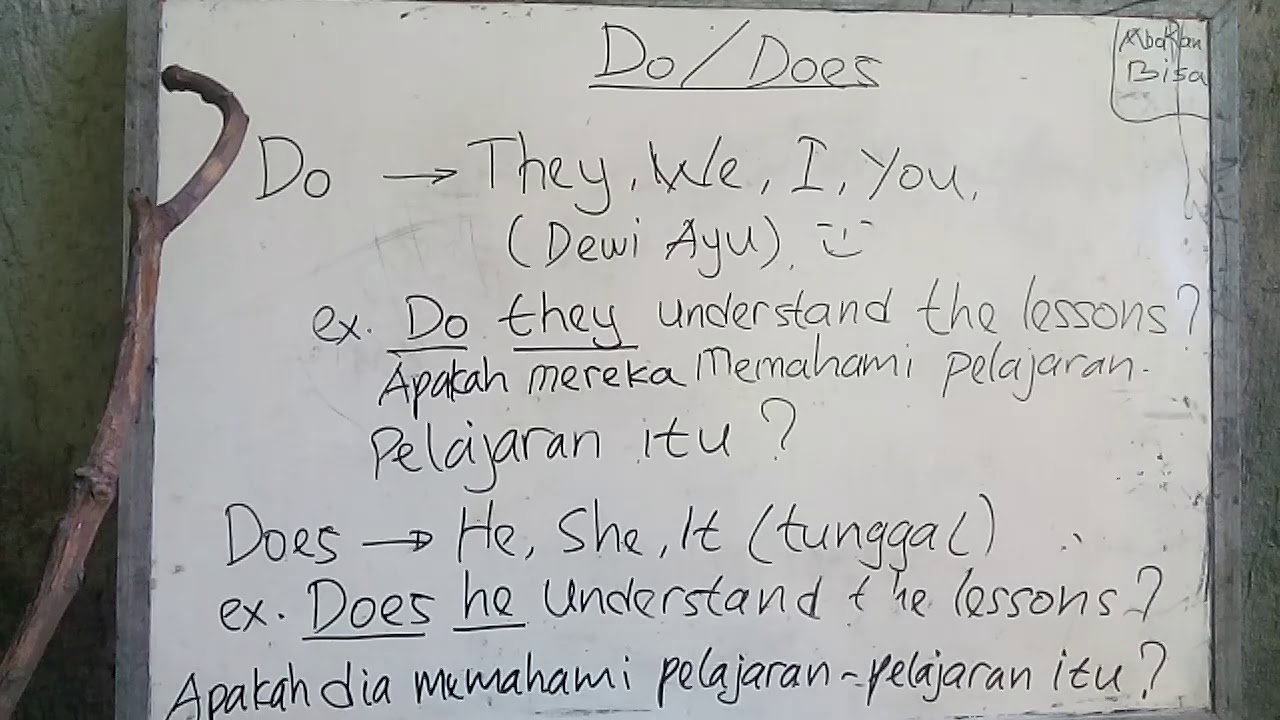 Do/Does
Bisa
Do → They, We, I, You,
(Dewi Ayu).
ex. Do they understand the lessons?
Apakah mereka Memahami pelajaran-
pelajaran itu?
Does → He, She, It (tunggal)
ex. Does he understand the lessons?
Apakah dia memahami pelajaran-pelajaran itu?